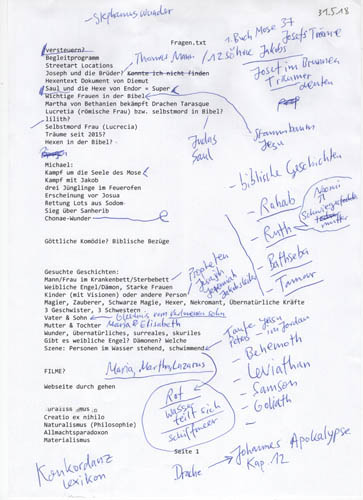 - Stephanus Wunder
31.5.18
1. Buch Mose 37
Fragen.txt
versteuern?
Begleitprogramm
Thomas Mann
12 Söhne Jakobs
Josefs Träume
Streetart Locations
Joseph und die Brüder? Konnte ich nicht finden
Josef im Brunnen
Träumer
deuten
Hexentext Dokument von Diemut
Saul und die Hexe von Endor = Super
Wichtige Frauen in der Bibel
Martha von Bethanien bekämpft Drachen Tarasque
Lucretia (römische Frau) bzw. selbstmord in Bibel?
lilith?
Selbstmord Frau (Lucrecia)
Träume seit 2015?
Hexen in der Bibel?
Judas
Saul
Stammbaum
Jesu
Michael:
Kampf um die Seele des Mose
Kampf mit Jakob
drei Jünglinge im Feuerofen
Erscheinung vor Josua
Rettung Lots aus Sodom
Sieg über Sanherib
Chonae-Wunder
- biblische Geschichten
- Rahab
- Ruth
Noomi
Schwiegermutter
- Bathseba
- Tamar
Göttliche Komödie? Biblische Bezüge
Gesuchte Geschichten:
Mann/Frau im Krankenbett/Sterbebett
Weibliche Engel/Dämon, Starke Frauen
Kinder (mit Visionen) oder andere Person
Propheten
Jesaja
Jeremia
Magier, Zauberer, Schwarze Magie, Hexer, Nekromant, Übernatürliche Kräfte
3 Geschwister, 3 Schwestern
Vater & Sohn - Gleichnis vom verlorenen Sohn
Mutter & Tochter Maria & Elisabeth
Wunder, übernatürliches, surreales, skuriles
Gibt es weibliche Engel? Dämonen? Welche
Szene: Personen im Wasser stehend, schwimmend
Taufe Jesu
im Jordan
Petrus
- Behemoth
- Leviathan
- Samson
- Goliath
FILME?
Maria, Martha, Lazarus
Webseite durch gehen
Rot
Wasser
teilt sich
Schilfmeer
Creatio ex nihilo
Naturalismus (Philosophie)
Allmachtsparadoxon
Materialismus
Seite 1
Konkordanz
Lexikon
Drache
Johannes Apokalypse
Kap. 12